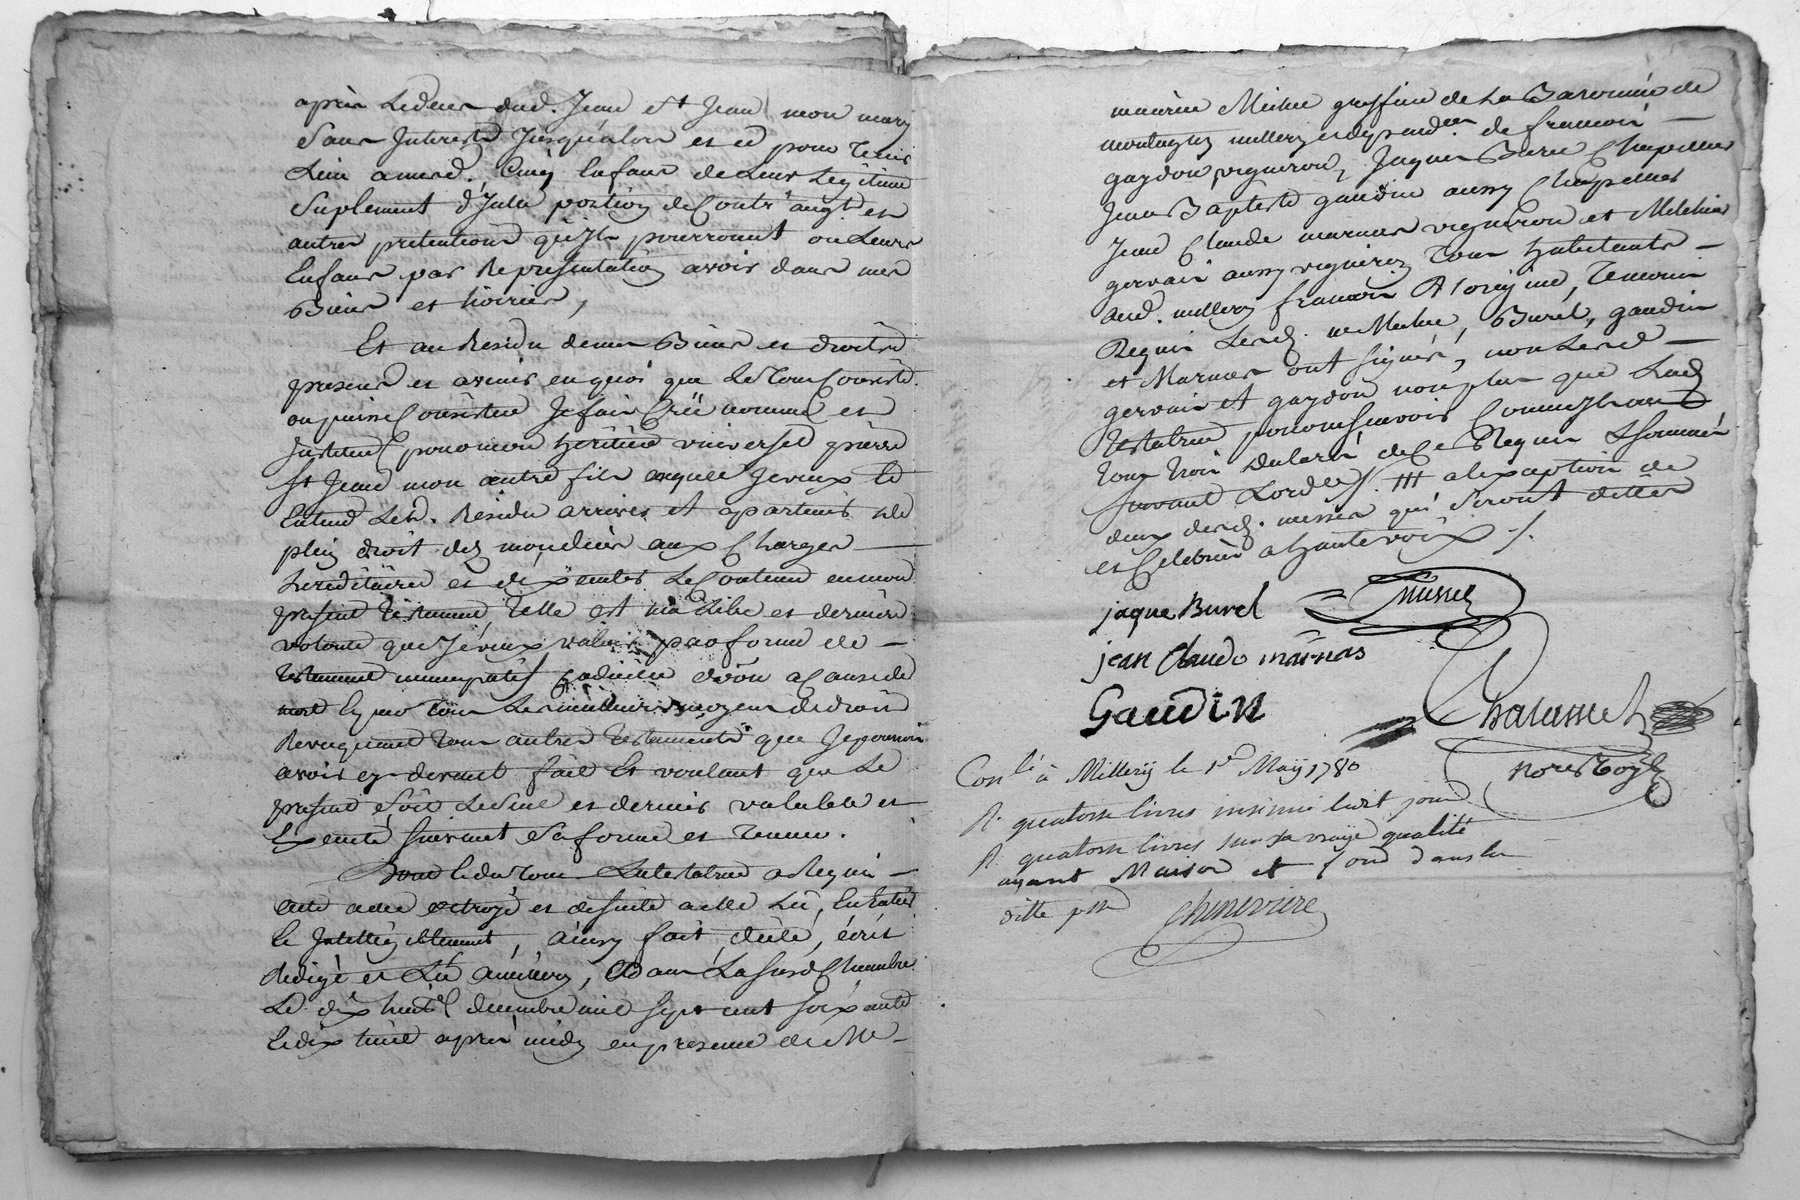 après le deces dud. Jean St Jean mon mary
sans Interests Jusqu'alors et ce pour tenir
Lieu a mesd. Cinq Enfans de Leur Legitime
Suplement d'Jcelle portion de Contr augt et
autres pretentions qu'Jls pourroient ou Leurs
Enfans par Representation avoir dans mes
Biens et hoirie,
Et au Residu de mes Biens et droits
presens et avenir en quoi que Le tout Consiste
ou puisse Consister Je fais Crée nomme et
Institue pour mon heritier universel pierre
St Jean mon autre fils auquel Je veux et
Entend Led. Residu arriver et apartenir de
plein droit dez mon deces aux Charges
hereditaires et d'executer Le Contenu en mon
present testament, telle est ma Libre et derniere
volonté que Je veux valoir par forme de
testament nuncupatif Codicille donation a Cause de
mort Et par tous Les meilleurs moyens de droit
Revoquant tous autres testaments que Je pourrois
avoir cy devant fait Et voulant que Le
present soit Le seul et dernier valable et
Executé suivant sa forme et teneur.
Dont et du tout La testatrice a Requis
acte a elle octroyé et de suite a elle Lû, Entendu
et Jntelligiblement, ainsy fait, dicté, écrit
Redigé et Lû a millery, dans La susd Chambre
Le dix huit decembre mil sept cent soixante
et dix huit après midy en presence de Me
maurice Michel greffier de La Baronnie de
montagny millery et dependces de francois
gaydon vigneron, Jaques Burel Chapellier
Jean Baptiste gaudin aussy Chapellier
Jean Claude marnas vigneron et Melchior
gervais aussy vigneron tous habitants
aud. millery temoins
Requis Lesd. me Michel, Burel, gaudin
et Marnas ont signés, non Lesd
gervais et gaydon non plus que Lad
testatrice pour ne scavoir Comme Jls ont
tous trois declaré de ce Requis et sommés
suivant Lordce /. a lexception de
deux desd. messes qui seront dittes
et Celebrées a haute voix /.
jaque Burel Michel
jean Claude marnas
Gaudin Chalumet
nore Royal
Conlé à Millery le 1er Maÿ 1780
R. quatorze livres insinué huit jours
R. quatorze livres sur sa vraye qualité
ayant Maison et fond dans la
ditte psse Cheneviere